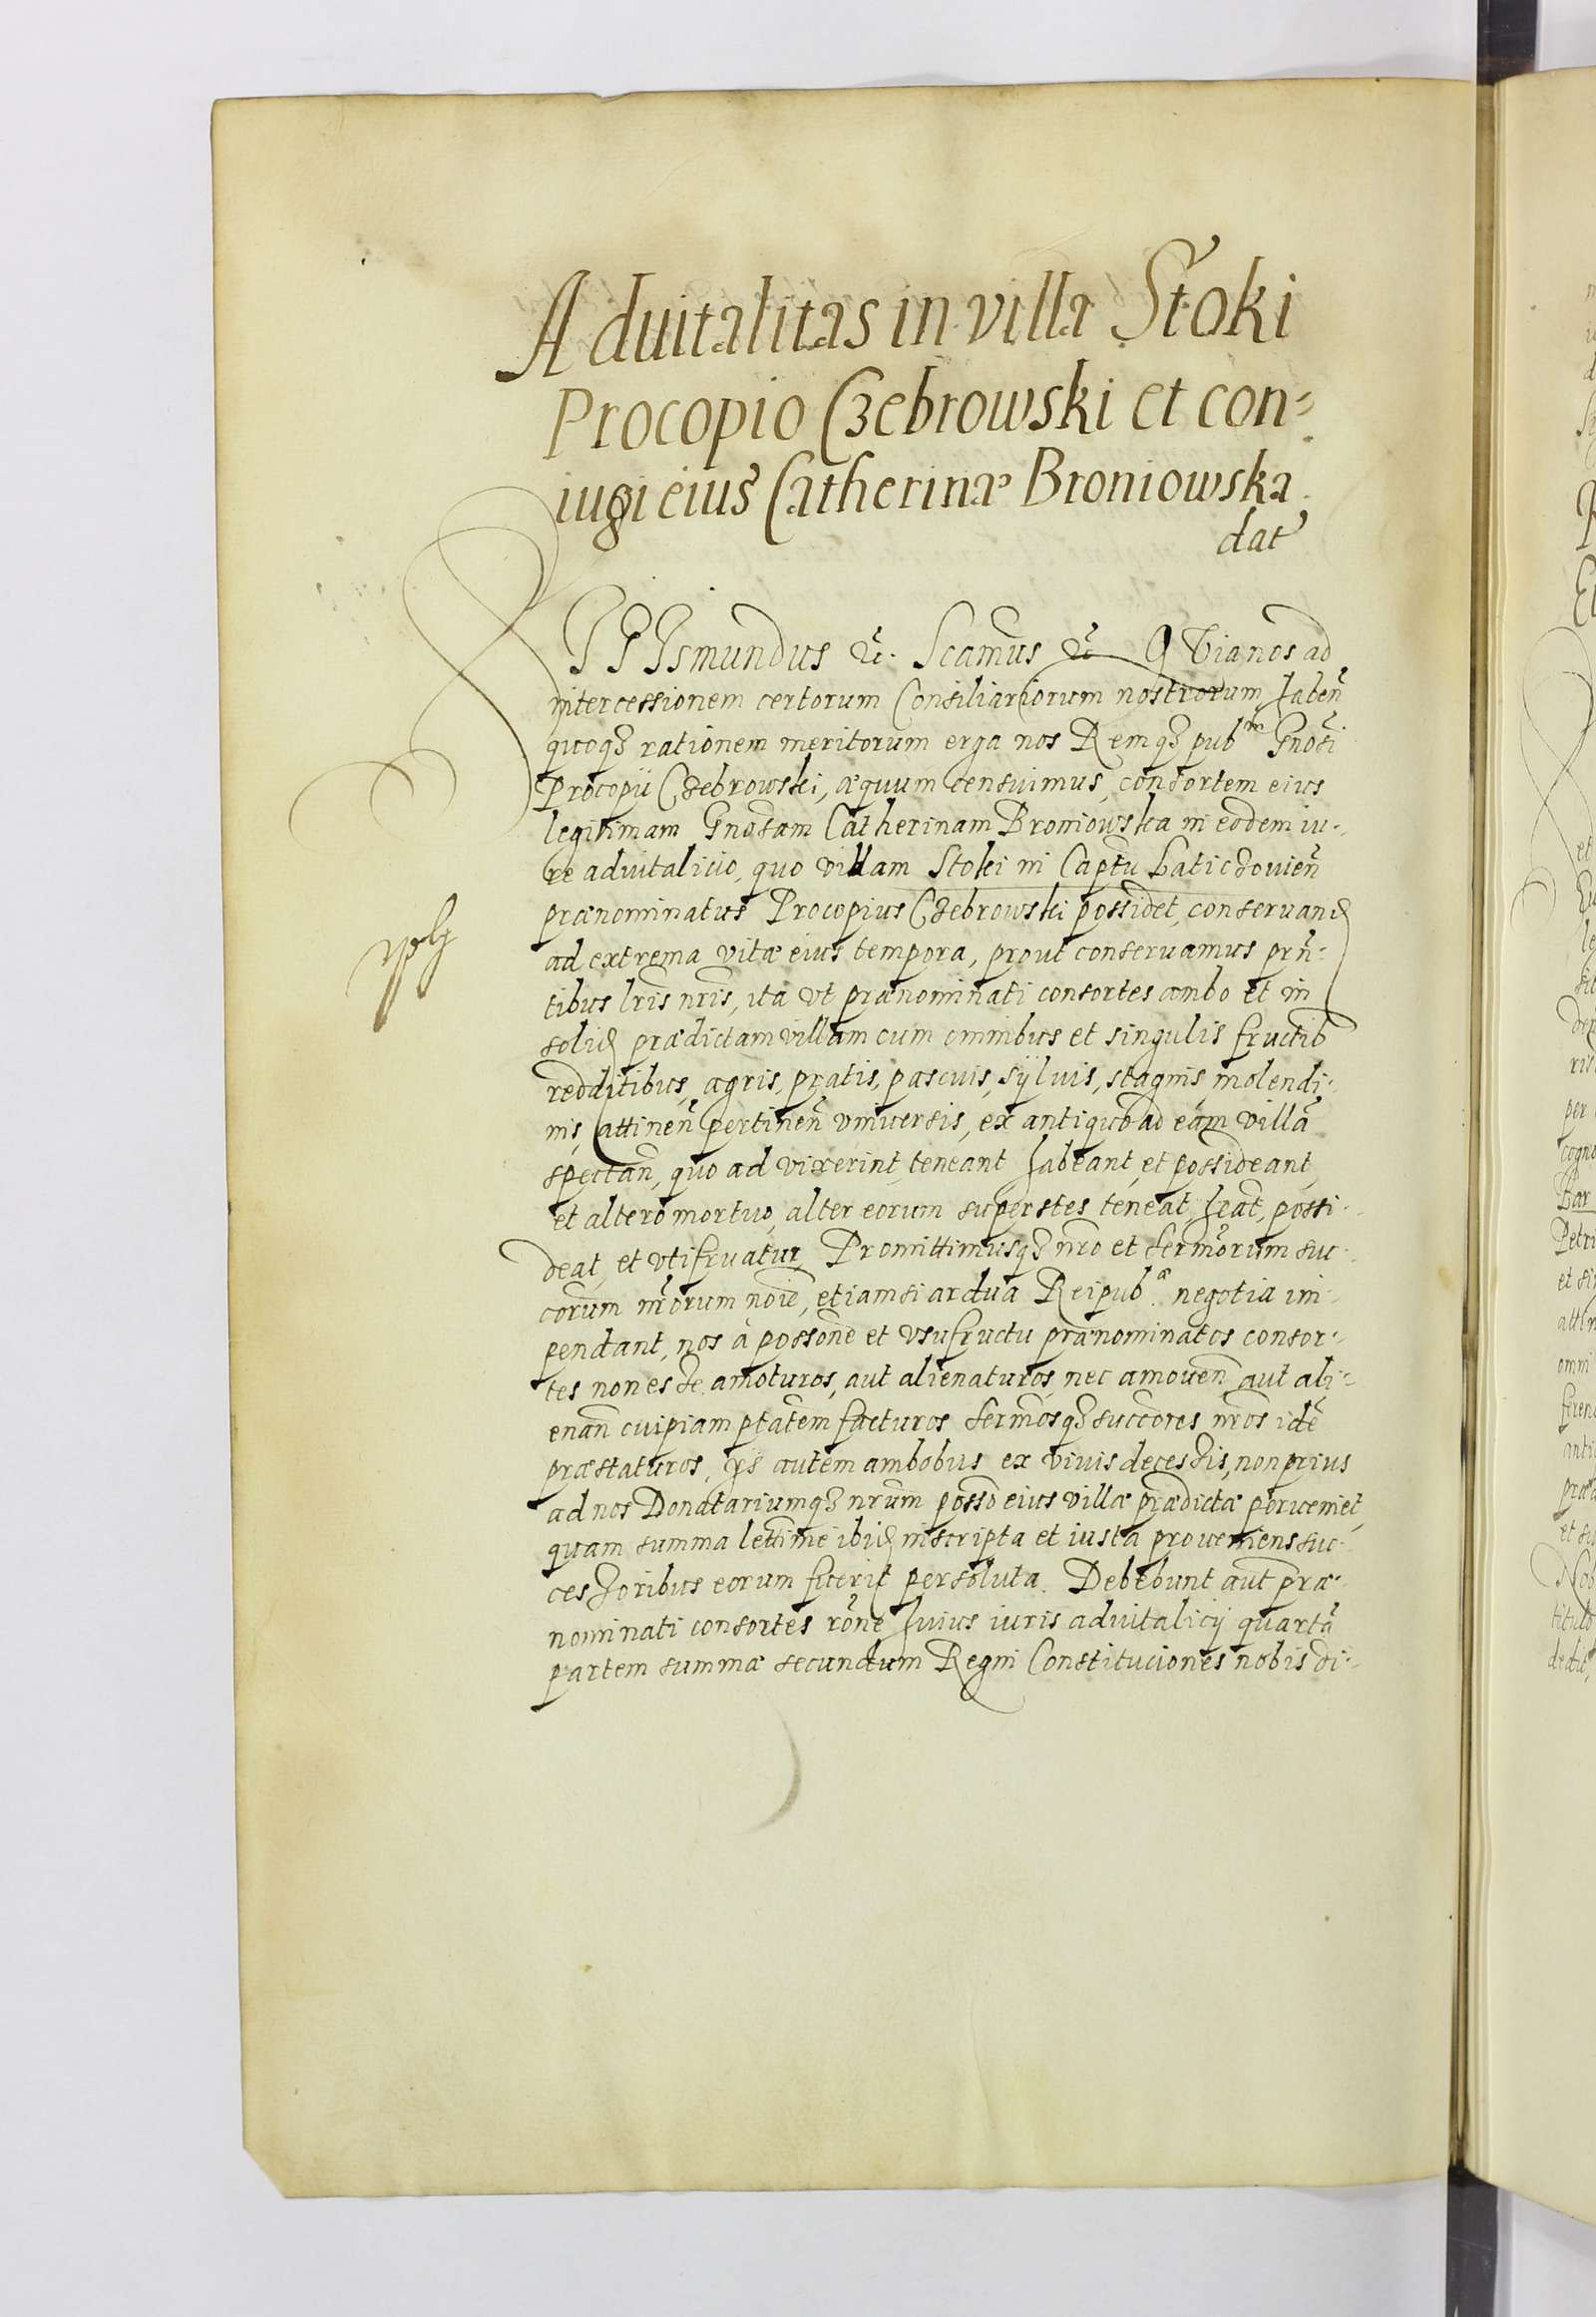 Aduitalitas in villa Stoki
Procopio Czebrowski et con=
iugi eius Catherinæ Broniowska
dat
SIGIsmundus &c. Scamus &c Q Vianos ad
intercessionem certorum Consiliariorum nostrorum, habeñ
quoqꝫ rationem meritorum erga nos Remqꝫ pubᵐ Gnosi
Procopii Czebrowski, æquum censuimus, consortem eius
legitimam Gnosam Catherinam Broniowska in eodem iu-
re aduitalicio, quo villam Stoki in Captu Laticzouieñ
prænominatus Procopius Czebrowski possidet, conseruand
ad extrema vitæ eius tempora, prout conseruamus prñ-
tibus lris nris, ita vt prænominati consortes ambo et in
solid prædictam villam cum omnibus et singulis fructib
redditibus, agris, pratis, pascuis, syluis, stagnis, molendi-
nis, attineñ pertineñ vniuersis, ex antiquo ad eam villã
spectañ, quo ad vixerint, teneant habeant, et possideant,
et altero mortuo, alter eorum superstes teneat, heat, possi-
deat, et vtifruatur, Promittimusqꝫ nro et sermorum suc-
corum nrorum noie, etiamsi ardua Reipubᵃ. negotia im-
pendant, nos à possone et vsufructu prænominatos consor-
tes non esse amoturos, aut alienaturos, nec amoueñ aut ali-
enañ cuipiam ptatem facturos sermosqꝫ succores nros idẽ
præstaturos, ijs autem ambobus ex viuis decessis, non prius
ad nos Donatariumqꝫ nrum posso eius villæ prædictæ perueniet,
quam summa lettime ibid inscripta et iusta proueniens suc-
cessoribus eorum fuerit persoluta. Debebunt aut præ-
nominati consortes rone huius iuris aduitalicij quartã
partem summæ secundum Regni Constituciones nobis di-